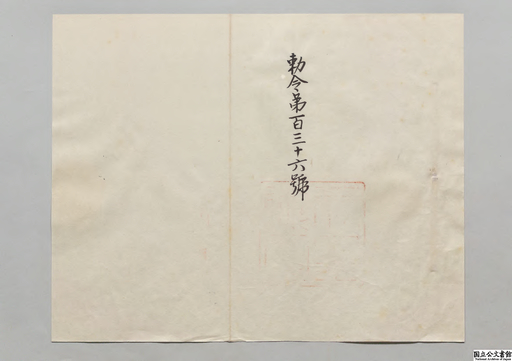 勅令第百三十六號
国立公文書館
National Archives of Japan